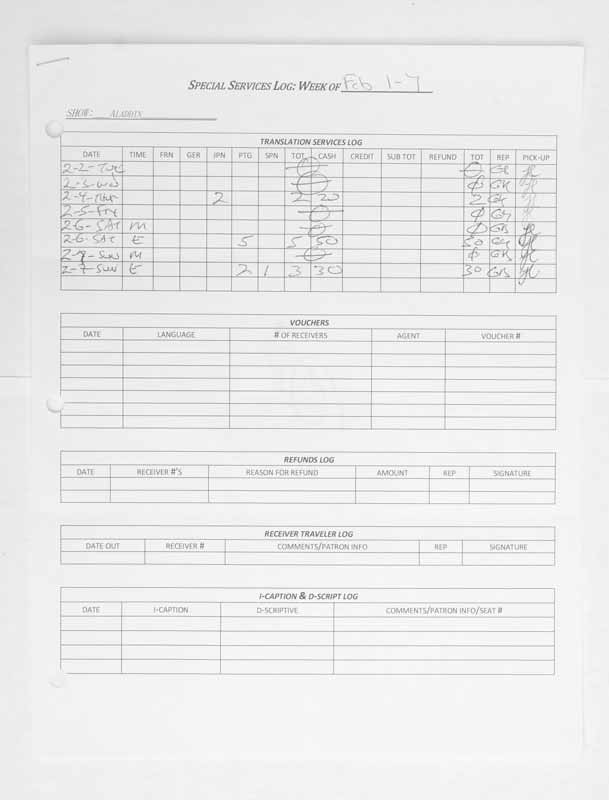 SPECIAL SERVICES LOG: WEEK OF Feb 1-7
SHOW: ALADDIN
TRANSLATION SERVICES LOG
DATE TIME FRN GER JPN PTG SPN TOT CASH CREDIT SUB TOT REFUND TOT REP PICK-UP
2-2-Tue Ø Ø GR
2-3-Wed Ø Ø GR
2-4-Thur 2 2 20 2 GR
2-5-Fry Ø Ø
2-6-SAT M Ø Ø GR
2-6-SAT E 5 5 50 50
2-7-Sun M Ø Ø GR
2-7-Sun E 2 1 3 30 30 GR
VOUCHERS
DATE LANGUAGE # OF RECEIVERS AGENT VOUCHER #
REFUNDS LOG
DATE RECEIVER #'S REASON FOR REFUND AMOUNT REP SIGNATURE
RECEIVER TRAVELER LOG
DATE OUT RECEIVER # COMMENTS/PATRON INFO REP SIGNATURE
I-CAPTION & D-SCRIPT LOG
DATE I-CAPTION D-SCRIPTIVE COMMENTS/PATRON INFO/SEAT #